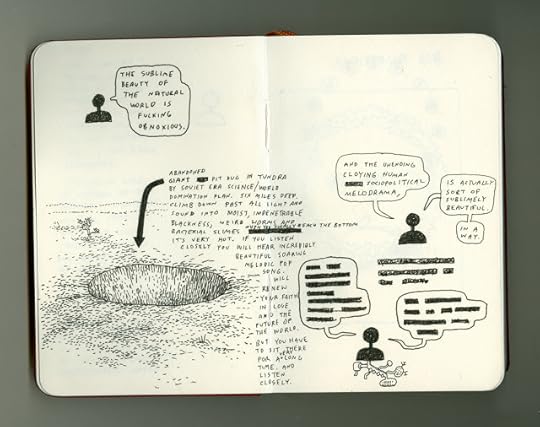 THE SUBLIME
BEAUTY OF
THE NATURAL
WORLD IS
FUCKING
OBNOXIOUS.
ABANDONED
GIANT PIT DUG IN TUNDRA
BY SOVIET ERA SCIENCE/WORLD
DOMINATION PLAN. SIX MILES DEEP.
CLIMB DOWN PAST ALL LIGHT AND
SOUND INTO MOIST, IMPENETRIBLE
BLACKNESS, WEIRD WORMS AND
BACTERIAL SLIMES UNTIL YOU SLOWLY REACH THE BOTTOM
IT'S VERY HOT. IF YOU LISTEN
CLOSELY YOU WILL HEAR INCREDIBLY
BEAUTIFUL SOARING
MELODIC POP
SONG.
WILL
RENEW
YOUR FAITH
IN LOVE
AND THE
FUTURE OF
THE WORLD.
BUT YOU HAVE
TO SIT THERE
FOR A VERY LONG
TIME. AND
LISTEN
CLOSELY.
AND THE UNENDING
CLOYING HUMAN
SOCIOPOLITICAL
MELODRAMA,
IS ACTUALLY
SORT OF
SUBLIMELY
BEAUTIFUL.
IN A
WAY.